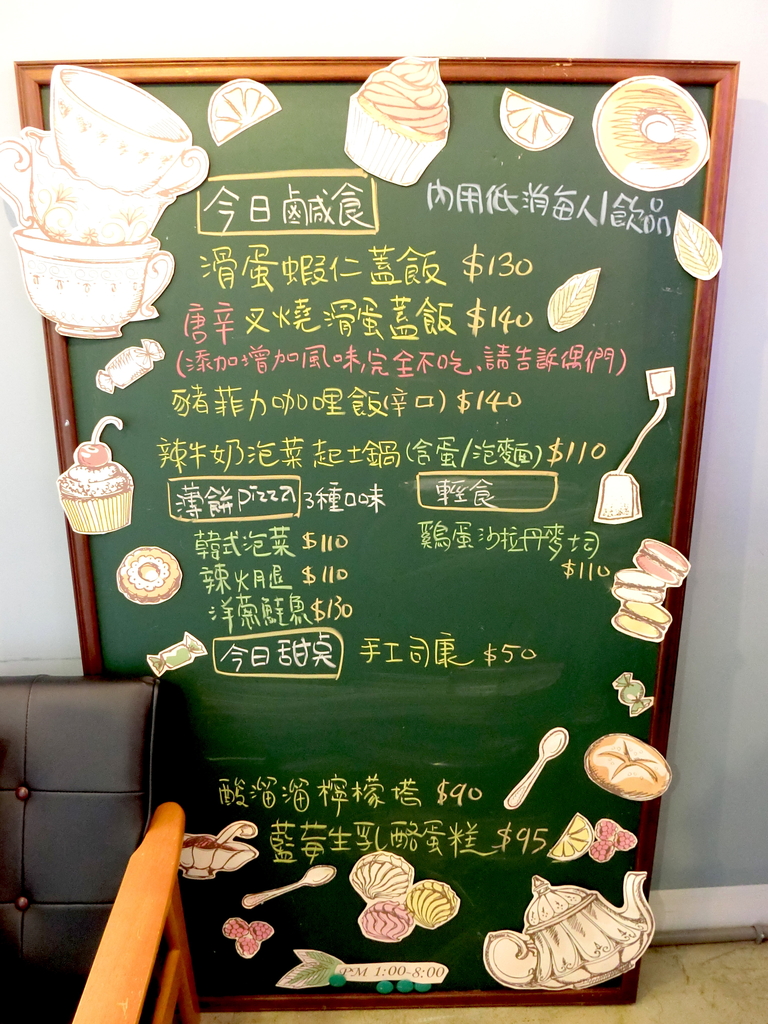 今日鹹食
內用低消每人1飲品
滑蛋蝦仁蓋飯 $130
唐辛叉燒滑蛋蓋飯 $140
(添加增加風味,完全不吃、請告訴偶們)
豬菲力咖哩飯(辛口) $140
辣牛奶泡菜起士鍋(含蛋/泡麵) $110
薄餅pizza 3種口味
輕食
韓式泡菜 $110
雞蛋沙拉丹麥土司
$110
辣火腿 $110
洋蔥鮭魚 $130
今日甜桌 手工司康 $50
酸溜溜檸檬塔 $90
藍莓生乳酪蛋糕 $95
PM 1:00-8:00